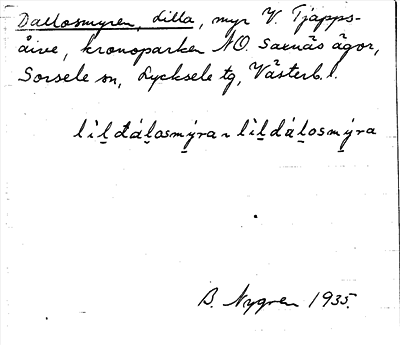 Dallosmyren, Lilla, myr V. Tjapps-
åive, kronoparken NO. Saxnäs ägor,
Sorsele sn, Lycksele tg, Västerb. l.
lìl̠đál̠osmy̠ra ~ lìl̠dál̠osmy̠ra
B. Nygren 1935.